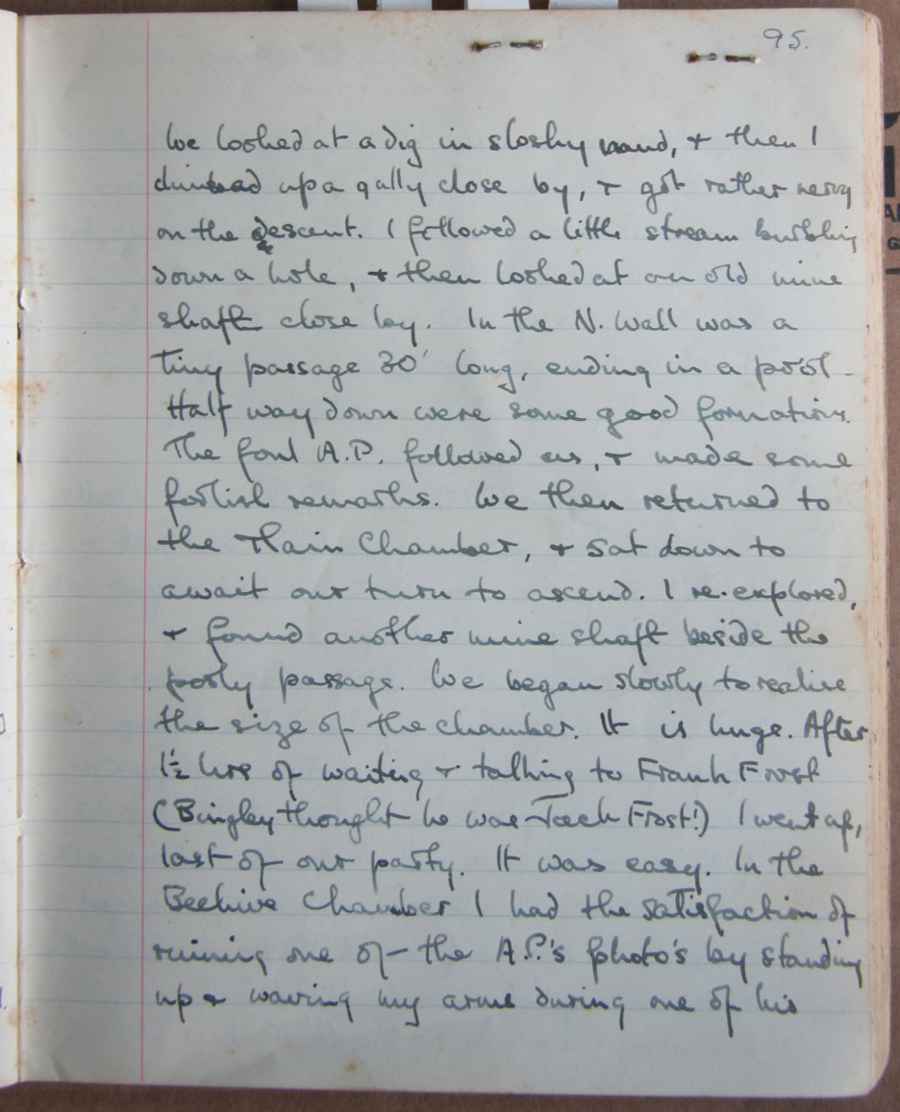 95.
We looked at a dig in sloshy sand, + then I
climbed up a gully close by, + got rather nervy
on the descent. I followed a little stream burbling
down a hole, + then looked at an old mine
shaft close by. In the N. Wall was a
tiny passage 30' long, ending in a pool.
Half way down were some good formations.
The foul A.P. followed us, + made some
foolish remarks. We then returned to
the Main Chamber, + sat down to
await our turn to ascend. I re-explored,
+ found another mine shaft beside the
pooly passage. We began slowly to realise
the size of the chamber. It is huge. After
1½ hrs of waiting + talking to Frank Frost
(Bingley thought he was Jack Frost!) I went up,
last of our party. It was easy. In the
Beehive Chamber I had the satisfaction of
ruining one of the A.P.'s photo's by standing
up + waving my arms during one of his